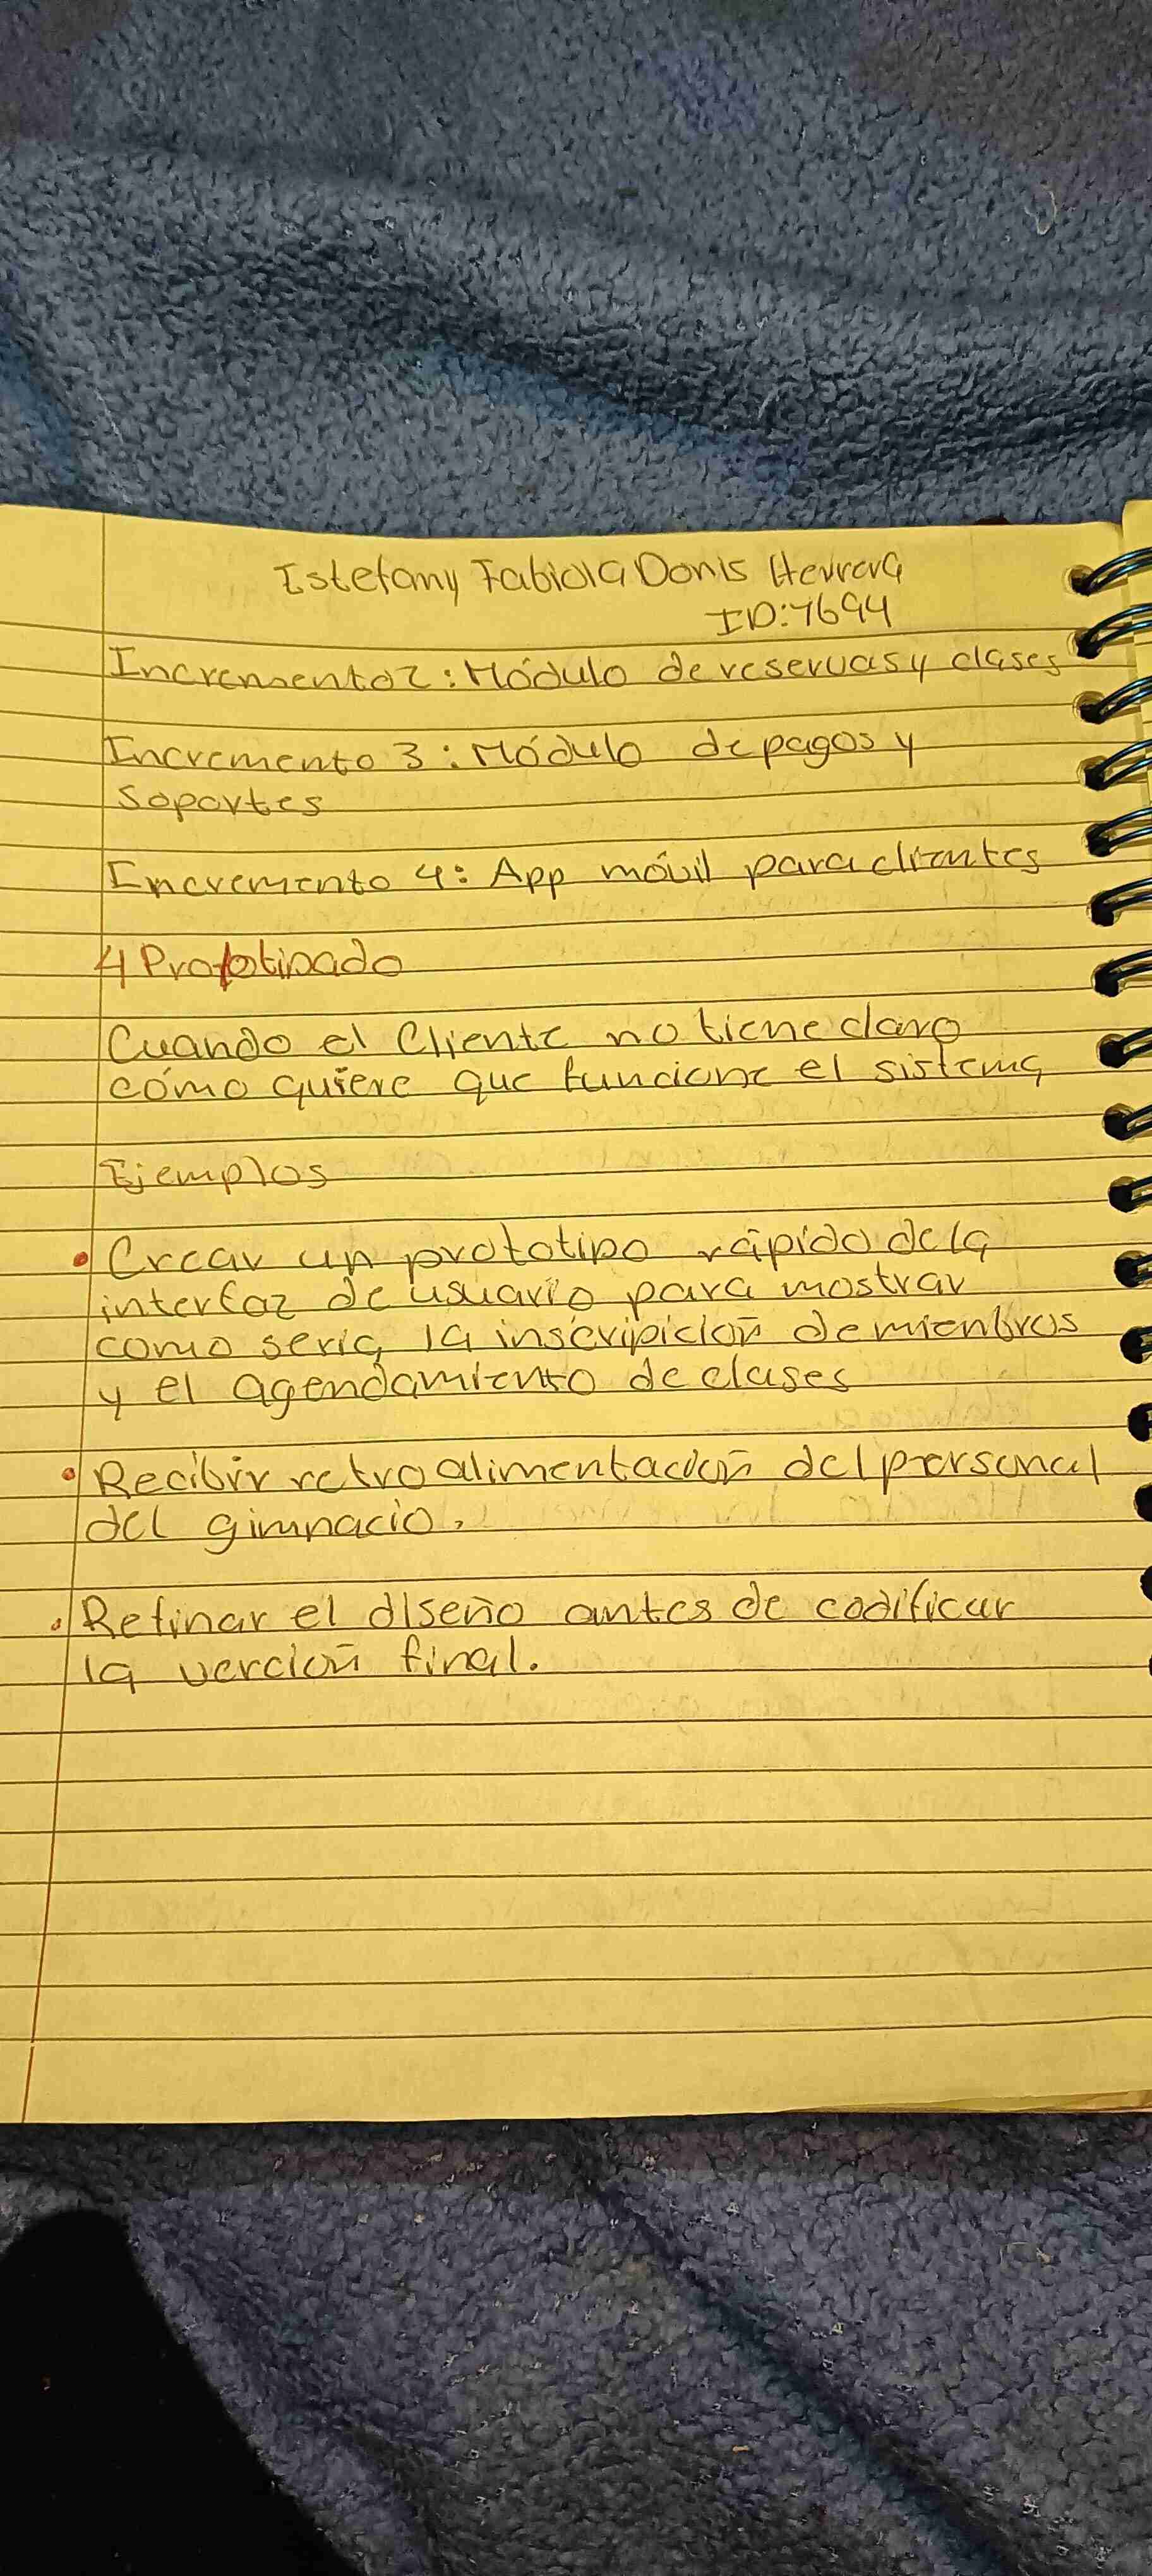 Istefany Fabiola Donis Herrera
ID:7694
Incremento 2: Módulo de reservas y clases
Incremento 3: Módulo de pagos y
Soportes
Incremento 4: App móvil para clientes
4 Prototipado
Cuando el Cliente no tiene claro
cómo quiere que funcione el sistema
Ejemplos
• Crear un prototipo rápido de la
interfaz de usuario para mostrar
como seria la inscripición de mienbros
y el agendamiento de clases
• Recibir retroalimentación del personal
del gimnacio.
• Refinar el diseño antes de codificar
la verción final.